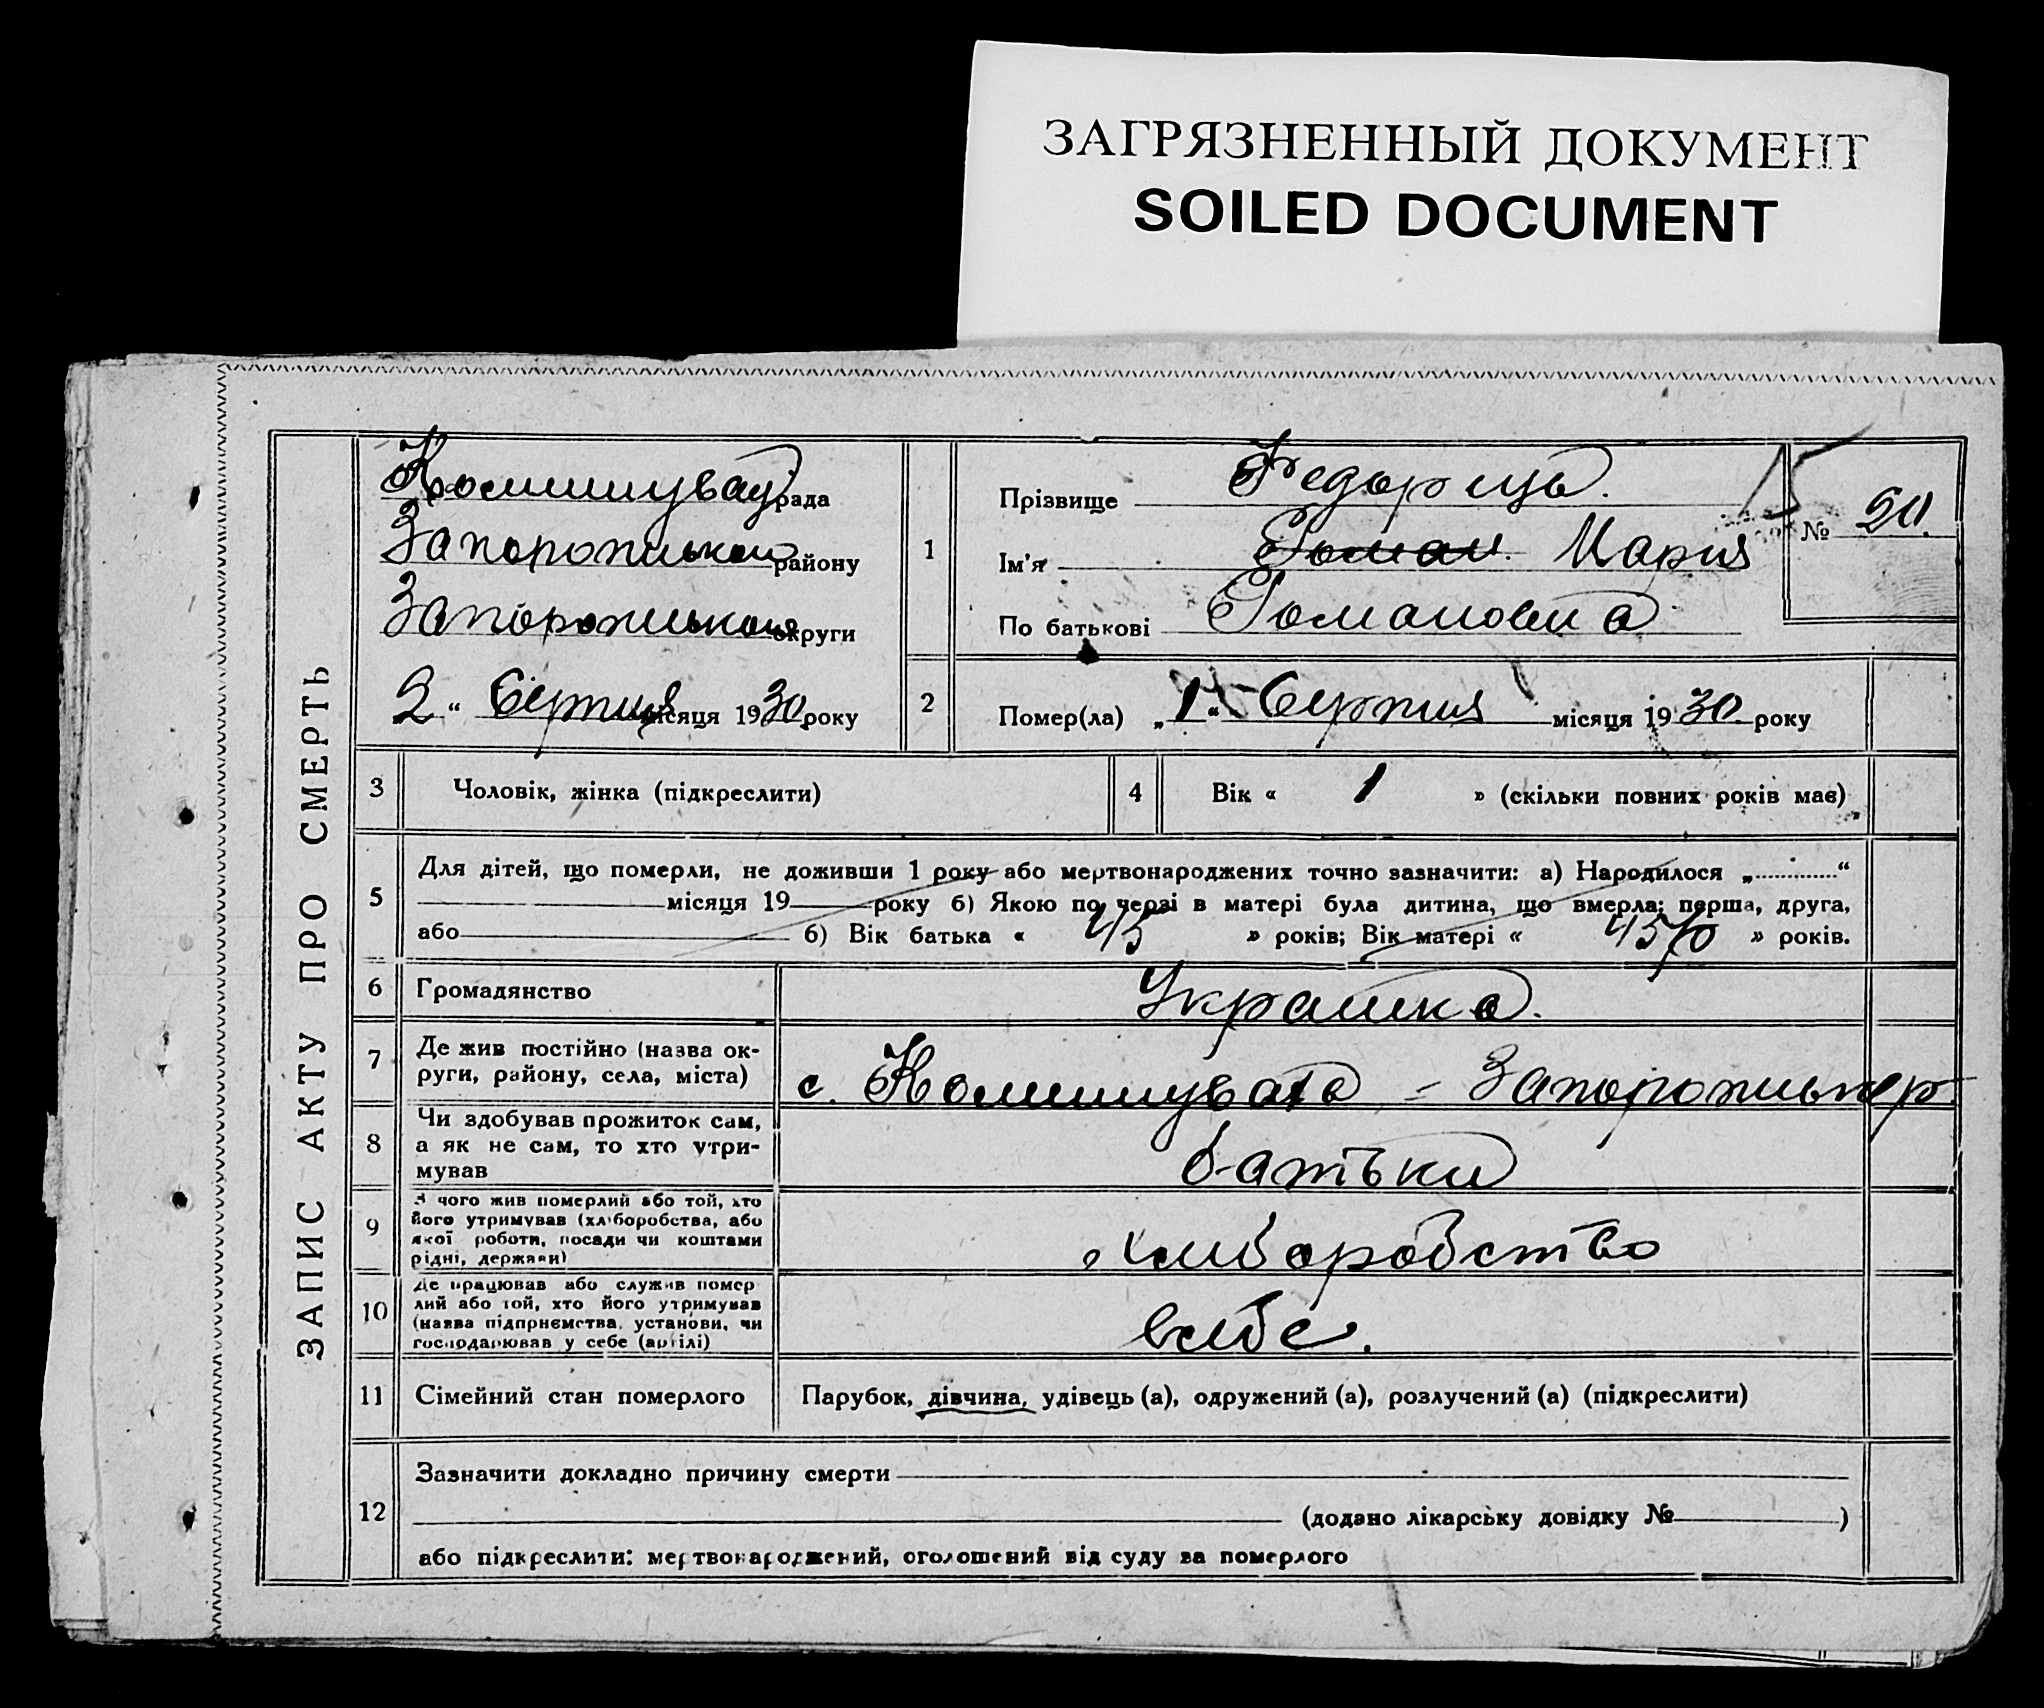 ЗАГРЯЗНЕННЫЙ ДОКУМЕНТ
SOILED DOCUMENT
ЗАПИС АКТУ ПРО СМЕРТЬ
Комишуват рада
Запорожської району
Запорожської округи
2 “ Серпня місяця 1930 року
1
Прізвище Федорець.
Ім'я Роман. Мария
По батькові Романовна
№ 50.
2
Помер(ла) „1“ Серпня місяця 1930 року
3 Чоловік, жінка (підкреслити)
4 Вік « 1 » (скільки повних років має)
5 Для дітей, що померли, не доживши 1 року або мертвонароджених точно зазначити: а) Народилося „............“
місяця 19 року б) Якою по черзі в матері була дитина, що вмерла: перша, друга,
або б) Вік батька « 45 » років; Вік матері « » років.
6 Громадянство Українка.
7 Де жив постійно (назва ок-
руги, району, села, міста) с. Комишувата - Запорожськ р.
8 Чи здобував прожиток сам,
а як не сам, то хто утри-
мував батьки
9 З чого жив померлий або той, хто
його утримував (хліборобства, або
якої роботи, посади чи коштами
рідні, держави) хліборобство
10 Де працював або служив помер
лий або той, хто його утримував
(назва підприємства, установи, чи
господарював у себе (артілі) в себе.
11 Сімейний стан померлого Парубок, дівчина, удівець (а), одружений (а), розлучений (а) (підкреслити)
12 Зазначити докладно причину смерти
(додано лікарську довідку № )
або підкреслити: мертвонароджений, оголошений від суду за померлого